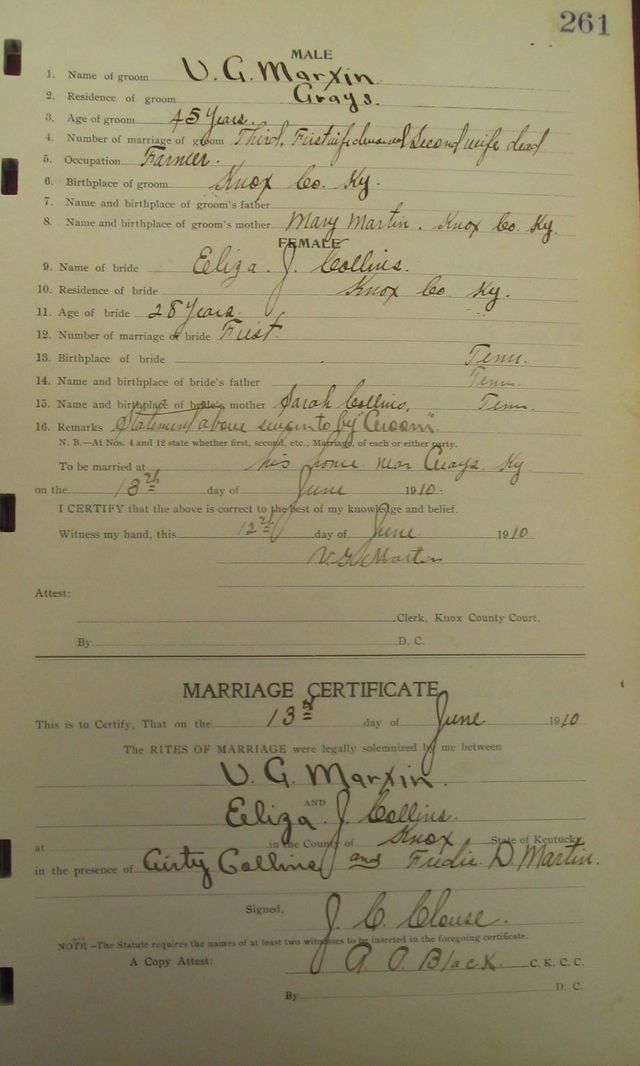 261
MALE
1. Name of groom V. G. Martin
2. Residence of groom Grays.
3. Age of groom 45 Years.
4. Number of marriage of groom Third, First wife Second wife dead
5. Occupation Farmer.
6. Birthplace of groom Knox Co. Ky.
7. Name and birthplace of groom's father
8. Name and birthplace of groom's mother Mary Martin. Knox Co. Ky.
FEMALE
9. Name of bride Eliza. J. Collins.
10. Residence of bride Knox Co. Ky.
11. Age of bride 28 Years.
12. Number of marriage of bride First.
13. Birthplace of bride Tenn.
14. Name and birthplace of bride's father Tenn.
15. Name and birthplace of bride's mother Sarah Collins. Tenn.
16. Remarks Statement above to by "Groom"
N. B.—At Nos. 4 and 12 state whether first, second, etc., Marriage, of each or either party.
To be married at his home near Grays. Ky
on the 13th day of June 1910.
I CERTIFY that the above is correct to the best of my knowledge and belief.
Witness my hand, this 12th day of June 1910
V. G. Martin
Attest:
Clerk, Knox County Court.
By D. C.
MARRIAGE CERTIFICATE
This is to Certify, That on the 13th day of June 1910
The RITES OF MARRIAGE were legally solemnized by me between
V. G. Martin.
AND
Eliza. J. Collins.
at in the County of Knox State of Kentucky
in the presence of Collins and D. Martin.
Signed, J. C. Clouse.
NOTE—The Statute requires the names of at least two witnesses to be inserted in the foregoing certificate.
A Copy Attest: Black C. K. C. C.
By D. C.